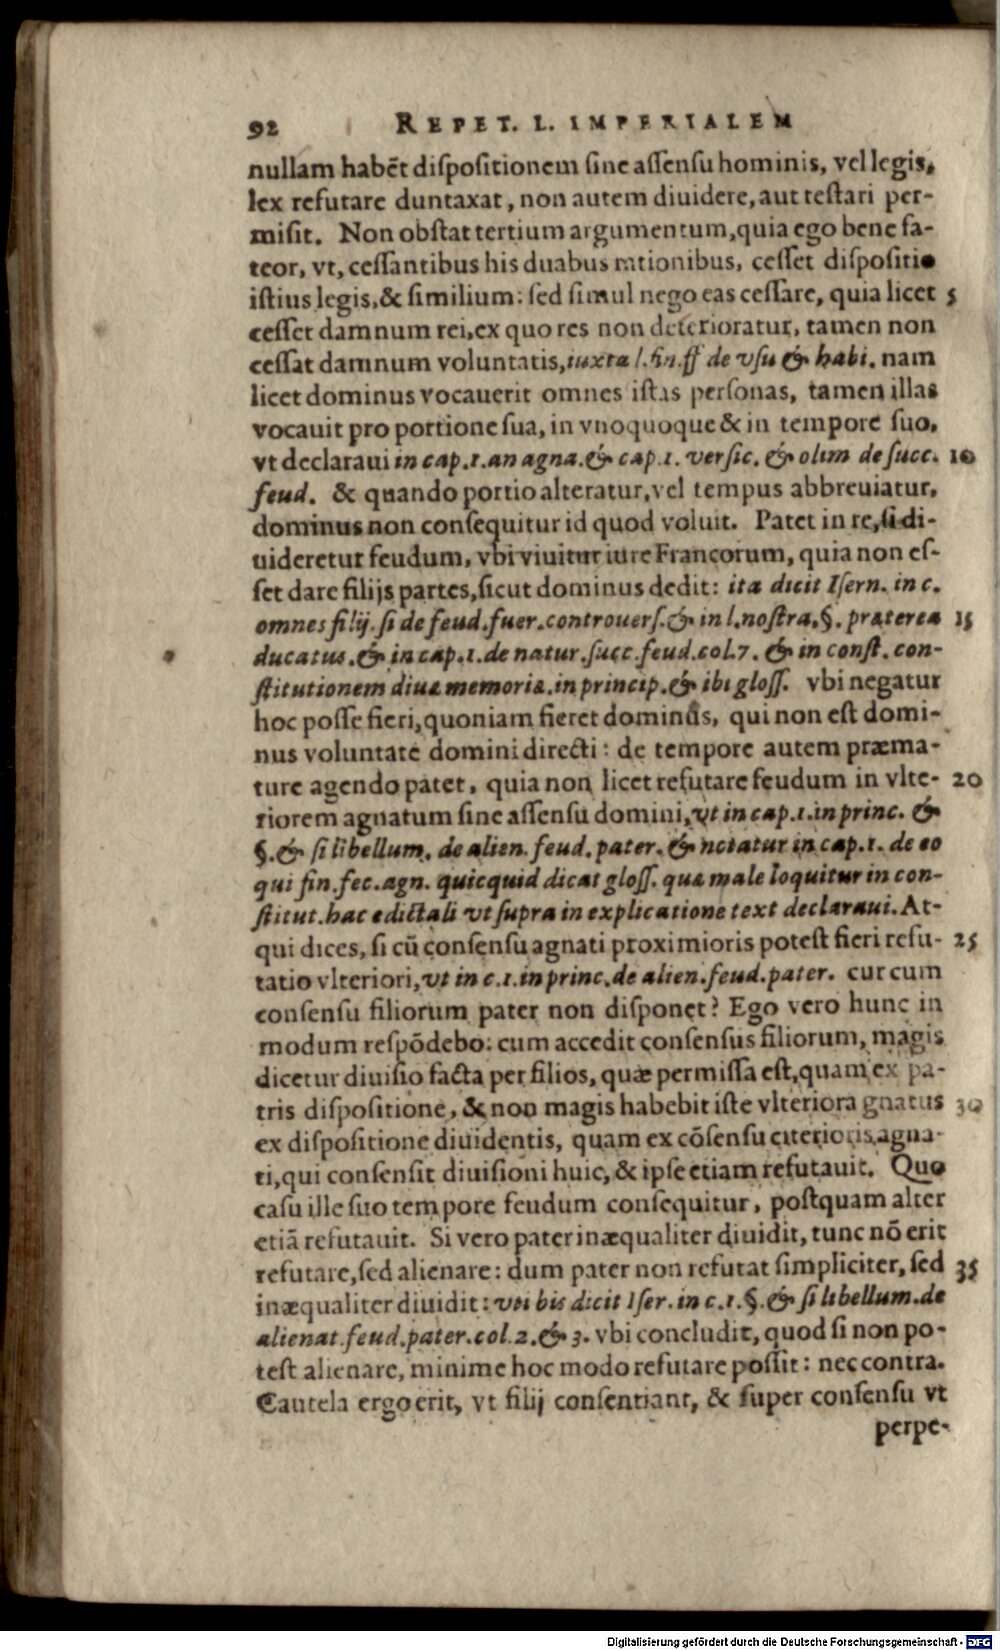 92 REPET. L. IMPERIALEM
nullam habẽt dispositionem sine assensu hominis, vel legis,
lex refutare duntaxat, non autem diuidere, aut testari per-
misit. Non obstat tertium argumentum, quia ego bene fa-
teor, vt, cessantibus his duabus rationibus, cesset dispositio
istius legis, & similium: sed simul nego eas cessare, quia licet 5
cesset damnum rei, ex quo res non deterioratur, tamen non
cessat damnum voluntatis, iuxta l. fin. ff de vsu & habi. nam
licet dominus vocauerit omnes istas personas, tamen illas
vocauit pro portione sua, in vnoquoque & in tempore suo,
vt declaraui in cap. 1. an agna. & cap. 1. versic. & olim de succ. 10
feud. & quando portio alteratur, vel tempus abbreuiatur,
dominus non consequitur id quod voluit. Patet in re, si di-
uideretur feudum, vbi viuitur iure Francorum, quia non es-
set dare filijs partes, sicut dominus dedit: ita dicit Isern. in c.
omnes filij. si de feud. fuer. controuers. & in l. nostra, §. præterea 15
ducatus. & in cap. 1. de natur. succ. feud. col. 7. & in const. con-
stitutionem diuæ memoriæ. in princip. & ibi gloss. vbi negatur
hoc posse fieri, quoniam fieret dominus, qui non est domi-
nus voluntate domini directi: de tempore autem præma-
ture agendo patet, quia non licet refutare feudum in vlte- 20
riorem agnatum sine assensu domini, vt in cap. 1. in princ. &
§. & si libellum. de alien. feud. pater. & notatur in cap. 1. de eo
qui fin. fec. agn. quicquid dicat gloss. quæ male loquitur in con-
stitut. hac edictali vt supra in explicatione text declaraui. At-
qui dices, si cũ consensu agnati proximioris potest fieri refu- 25
tatio vlteriori, vt in c. 1. in princ. de alien. feud. pater. cur cum
consensu filiorum pater non disponet? Ego vero hunc in
modum respõdebo: cum accedit consensus filiorum, magis
dicetur diuisio facta per filios, quæ permissa est, quam ex pa-
tris dispositione, & non magis habebit iste vlteriora gnatus 30
ex dispositione diuidentis, quam ex cõsensu citerioris agna-
ti, qui consensit diuisioni huic, & ipse etiam refutauit. Quo
casu ille suo tempore feudum consequitur, postquam alter
etiã refutauit. Si vero pater inæqualiter diuidit, tunc nõ erit
refutare, sed alienare: dum pater non refutat simpliciter, sed 35
inæqualiter diuidit: vti bis dicit Iser. in c. 1. §. & si libellum. de
alienat. feud. pater. col. 2. & 3. vbi concludit, quod si non po-
test alienare, minime hoc modo refutare possit: nec contra.
Cautela ergo erit, vt filij consentiant, & super consensu vt
perpe-
Digitalisierung gefördert durch die Deutsche Forschungsgemeinschaft - DFG